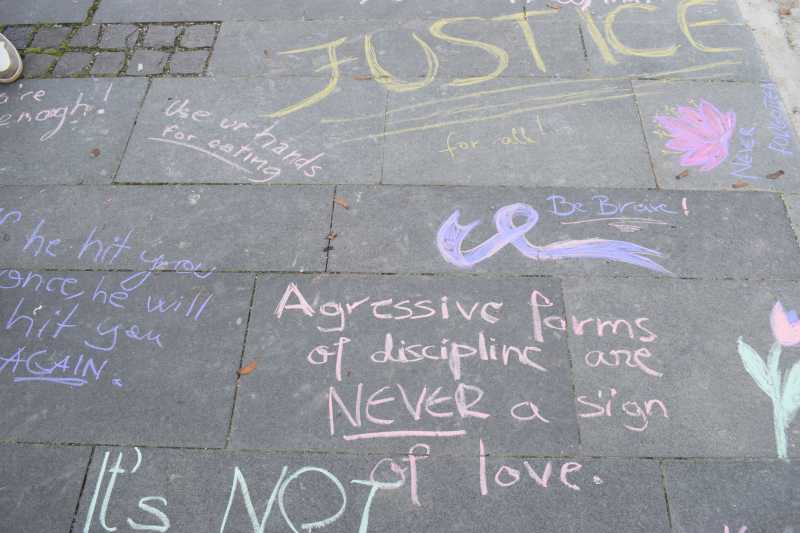 JUSTICE
for all!
enough!
Use ur hands
for eating
NEVER
FORGOTTEN
Be Brave!
he hit you
once, he will
hit you
AGAIN.
Agressive forms
of discipline are
NEVER a sign
of love.
It's NOT